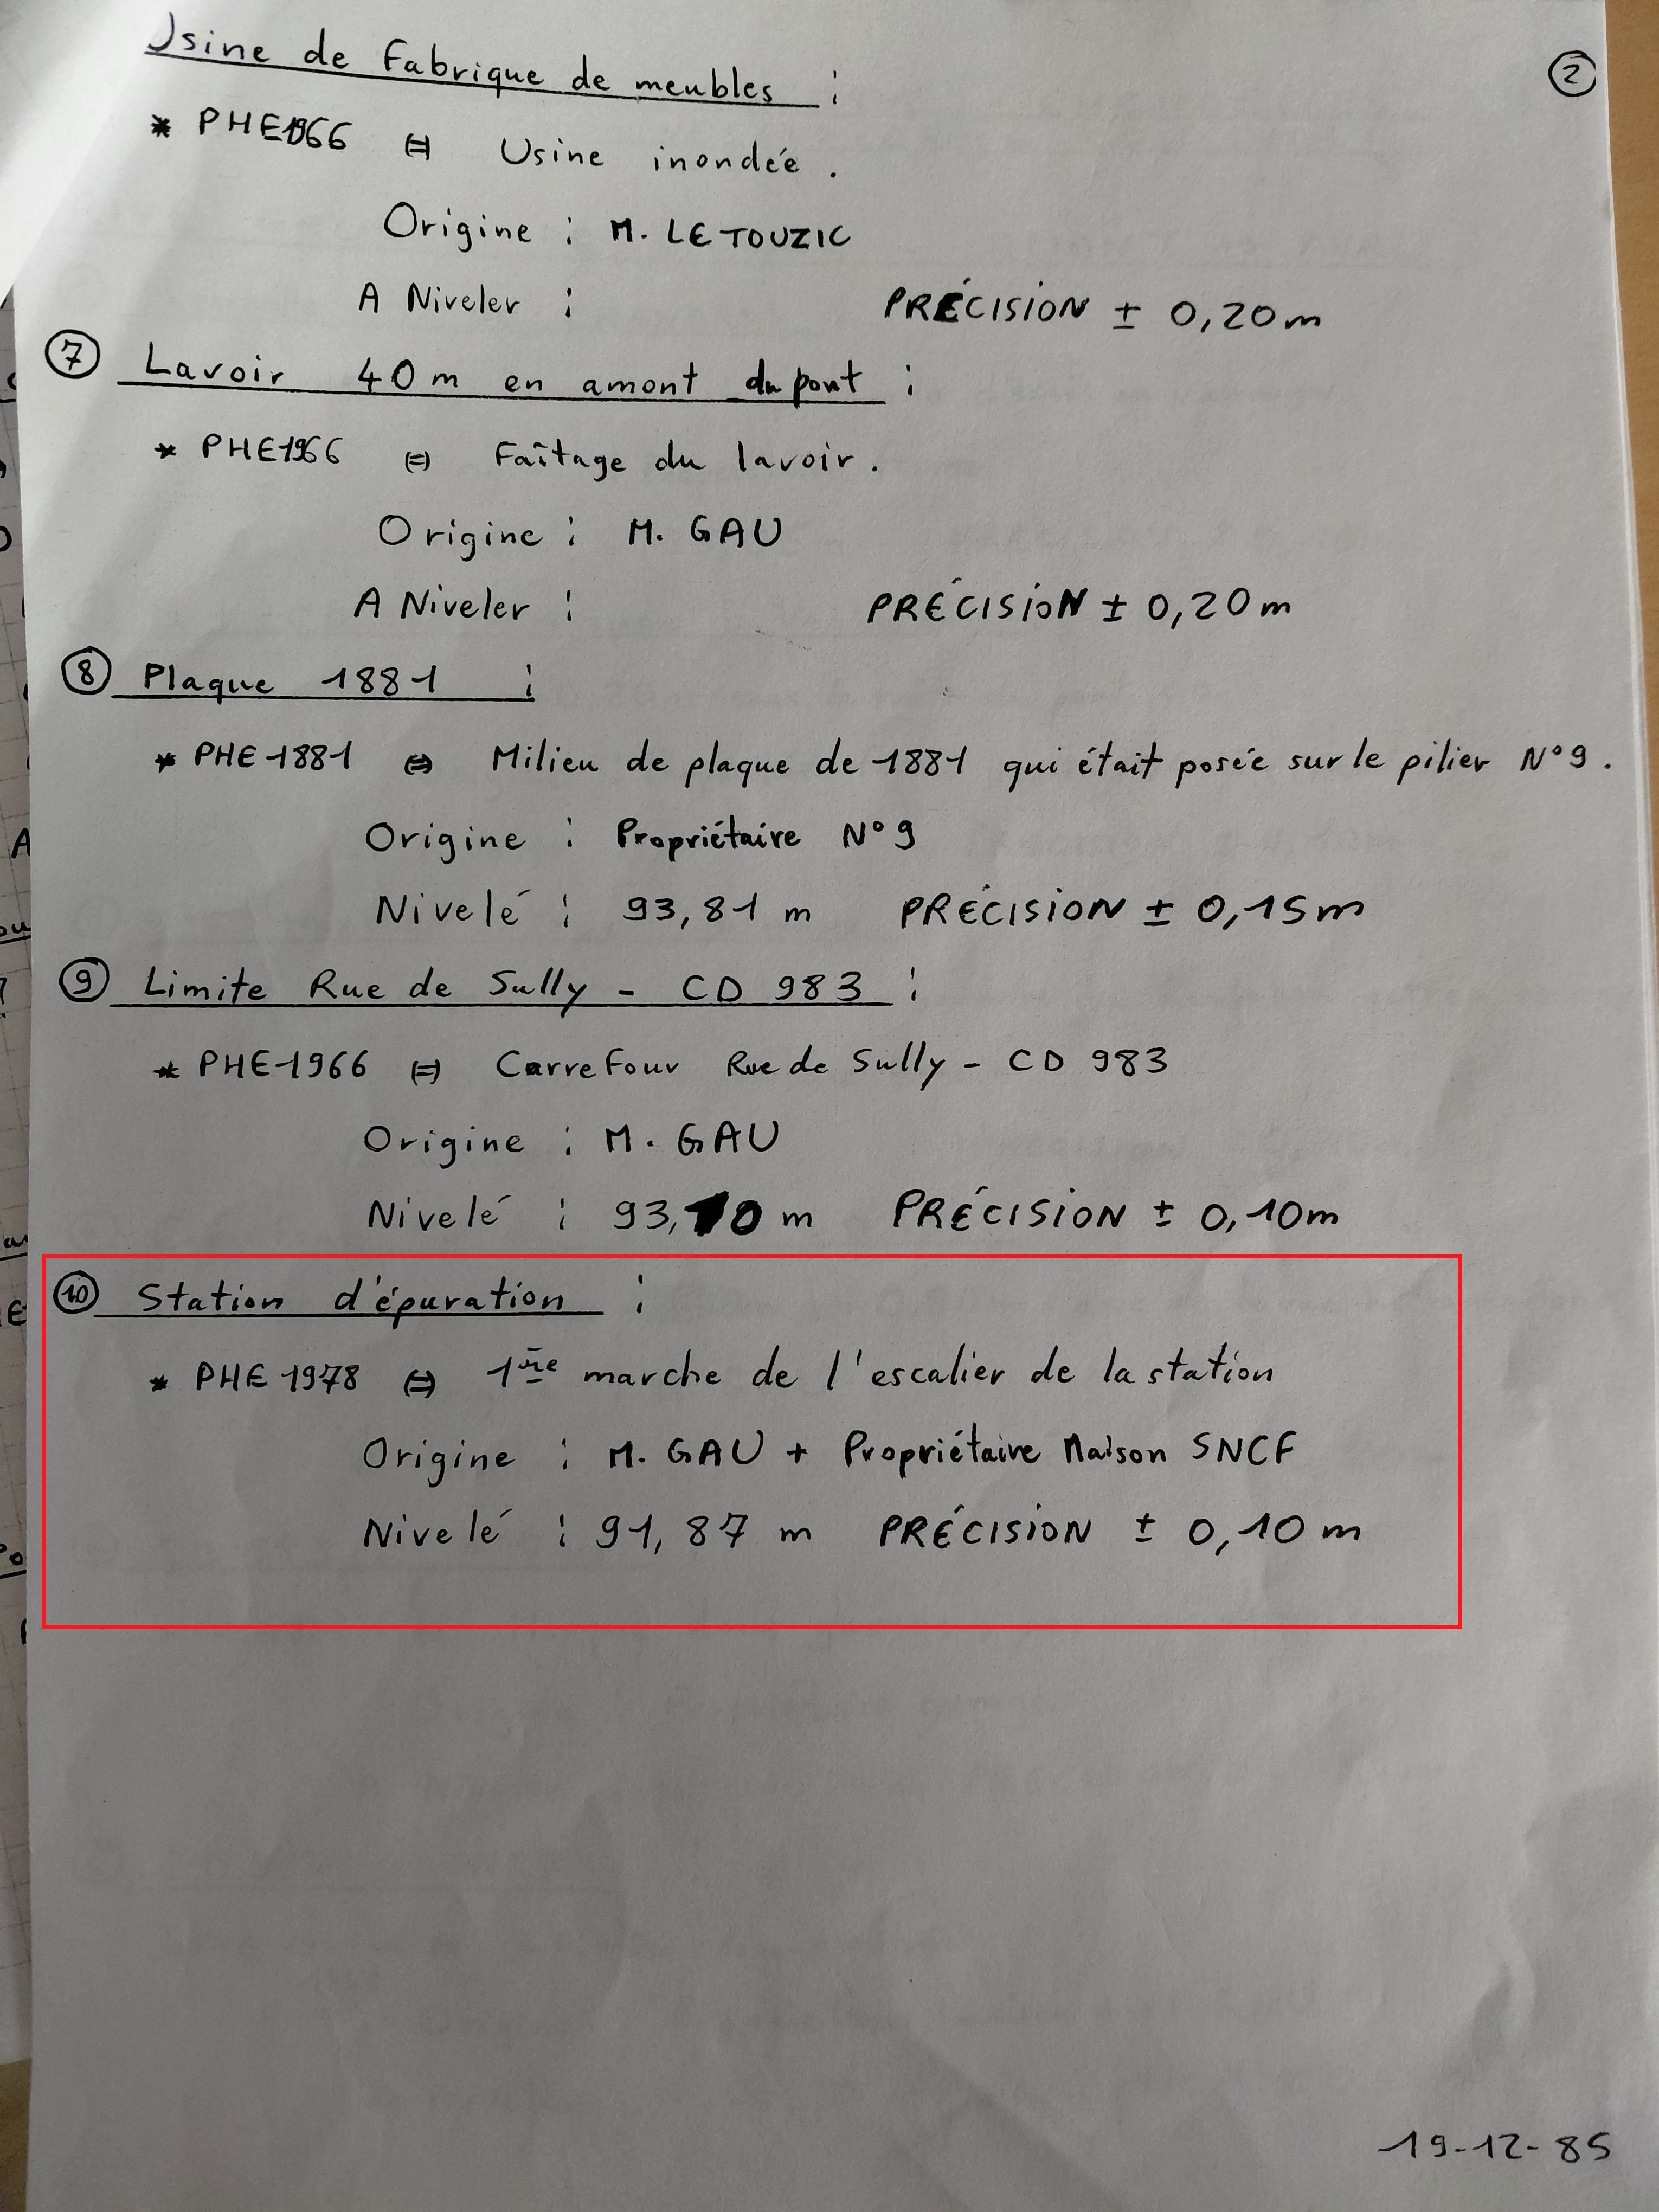 Usine de Fabrique de meubles :
②
* PHE1966 ⇔ Usine inondée.
Origine : M. LETOUZIC
A Niveler : PRÉCISION ± 0,20m
⑦ Lavoir 40m en amont du pont :
* PHE1966 ⇔ Faîtage du lavoir.
Origine : M. GAU
A Niveler : PRÉCISION ± 0,20m
⑧ Plaque 1881 :
* PHE 1881 ⇔ Milieu de plaque de 1881 qui était posée sur le pilier N°9.
Origine : Propriétaire N°9
Nivelé : 93,81 m PRÉCISION ± 0,15m
⑨ Limite Rue de Sully - CD 983 :
* PHE1966 ⇔ Carrefour Rue de Sully - CD 983
Origine : M. GAU
Nivelé : 93,10 m PRÉCISION ± 0,10m
⑩ Station d'épuration :
* PHE 1978 ⇔ 1ère marche de l'escalier de la station
Origine : M. GAU + Propriétaire Maison SNCF
Nivelé : 91,87 m PRÉCISION ± 0,10m
19-12-85